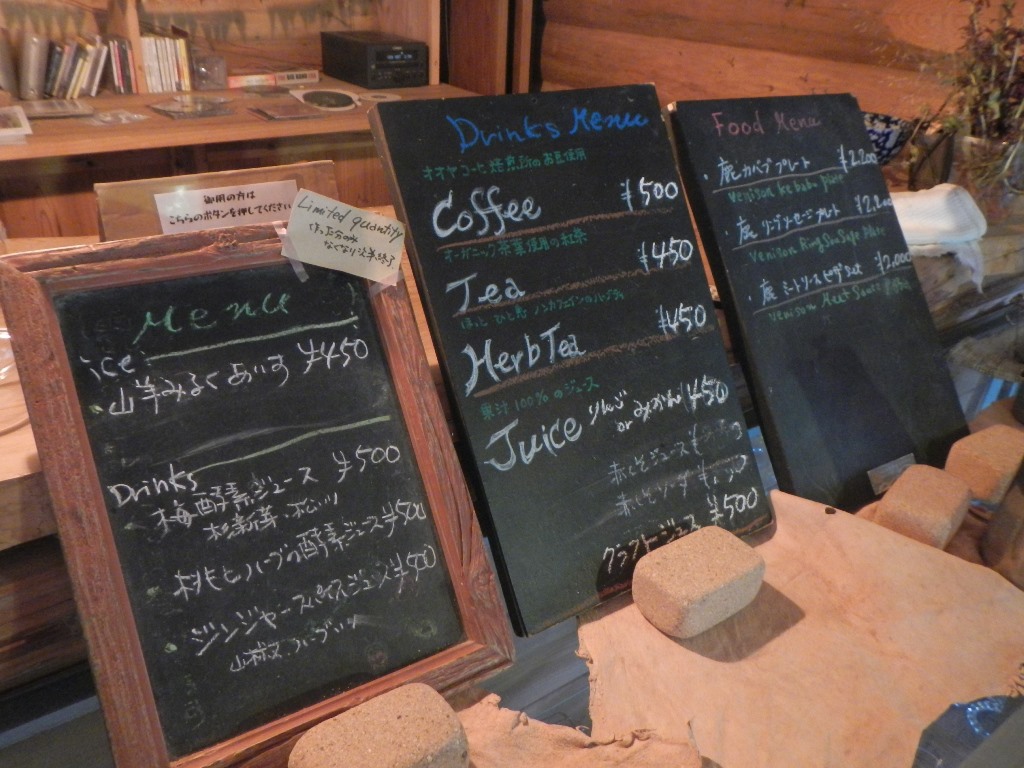 御用の方は
こちらのボタンを押してください
Limited quantity
なくなり次第終了
Menu
ice
山羊みるくあいす ¥450
Drinks
梅酵素ジュース ¥500
桃とハーブの酵素ジュース ¥500
ジンジャースパイスジュース ¥500
Drinks Menu
オオヤコーヒ焙煎所のお豆使用
Coffee ¥500
オーガニック茶葉使用の紅茶
Tea ¥450
ノンカフェインのハーブティ
Herb Tea ¥450
果汁100%のジュース
Juice りんご or みかん ¥450
赤しそジュース
赤しそソーダ
クラフトジュース ¥500
Food Menu
・鹿カバブプレート ¥2,200
Venison kebabu plate
・鹿リングソーセージプレート ¥2,200
Venison Ring SouSage Plate
・鹿ミートソースピザ ¥2,000
Venison Meet Sauce